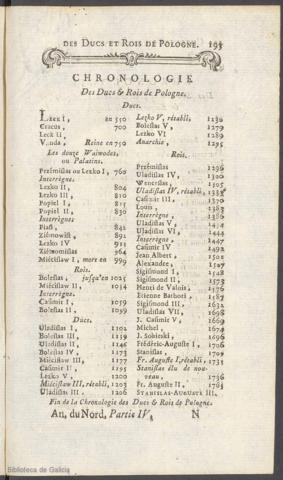 DES DUCS ET ROIS DE POLOGNE. 193
CHRONOLOGIE
Des Ducs & Rois de Pologne.
Ducs.
LEKH I, en 550
Cracus, 700
Leck II,
Vanda, Reine en 750
Les douze Waiwodes,
ou Palatins.
Prémislas ou Lezko I, 760
Interrègne.
Lezko II, 804
Lezko III, 810
Popiel I, 815
Popiel II, 830
Interrègne.
Piast, 842
Ziémowist, 892
Lezko IV, 913
Ziémomislas, 964
Miécislaw I, mort en 999
Rois.
Boleslas, jusqu'en 1025
Miécislaw II, 1034
Interrègne.
Casimir I, 1059
Boleslas II, 1099
Ducs.
Uladislas I, 1104
Boleslas III, 1139
Uladislas II, 1146
Boleslas IV, 1173
Miécislaw III, 1177
Casimir II, 1195
Lezko V, 1200
Miécislaw III, rétabli, 1203
Uladislas III, 1206
Lezko V, rétabli, 1230
Boleslas V, 1279
Lezko VI, 1289
Anarchie, 1295
Rois.
Prémislas, 1296
Uladislas IV, 1300
Wenceslas, 1305
Uladislas IV, rétabli,
Casimir III, 1370
Louis, 1383
Interrègne, 1386
Uladislas V, 1434
Uladislas VI, 1444
Interrègne, 1447
Casimir IV, 1492
Jean Albert, 1501
Alexandre, 1507
Sigismond I, 1548
Sigismond II, 1573
Henri de Valois, 1576
Etienne Bathori, 1587
Sigismond III, 1632
Uladislas VII, 1648
J. Casimir V, 1669
Michel, 1674
J. Sobieski, 1696
Fréderic-Auguste I, 1706
Stanislas, 1709
Fr. Auguste I, rétabli, 1733
Stanislas élu de nouveau, 1736
Fr. Auguste II, 1763
STANISLAS-AUGUSTE II,
Fin de la Chronologie des Ducs & Rois de Pologne.
An. du Nord, Partie IV. N
Biblioteca de Galicia